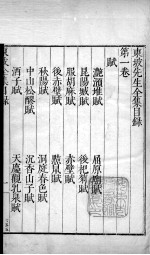 東坡先生全集目録
第一卷
賦
灔澦堆賦
屈原廟賦
昆陽城賦
後杞菊賦
服胡麻賦
赤壁賦
後赤壁賦
黠鼠賦
秋陽賦
洞庭春色賦
中山松醪賦
沉香山子賦
酒子賦
天慶觀乳泉賦